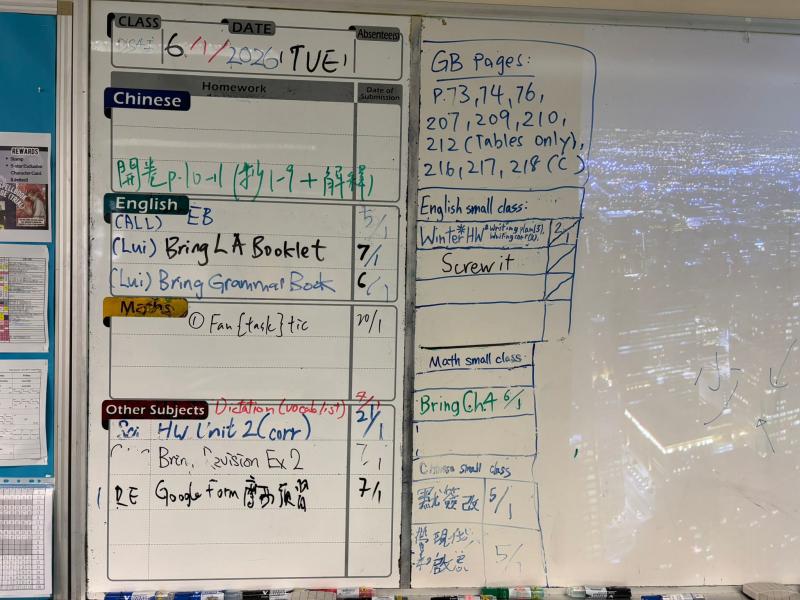 CLASS DATE Absentee(s)
6/1/2026 TUE
Homework Date of Submission
Chinese
開卷 p.10-11 (抄1-9 + 解釋)
English
(ALL) EB 5/1
(Lui) Bring LA Booklet 7/1
(Lui) Bring Grammar Book 6/1
Maths
① Fan{task}tic 20/1
Other Subjects Dictation (vocab list)
HW Unit 2 (corr) 21/1
Revision Ex 2 7/1
RE Google Form 7/1
GB Pages:
P.73, 74, 76,
207, 209, 210,
212 (Tables Only),
216, 217, 218 (C)
English small class:
Winter* HW 2/1
Screw it
Math small class:
Bring Ch.4 6/1
Chinese small class
簽改 5/1
5/1
REWARDS